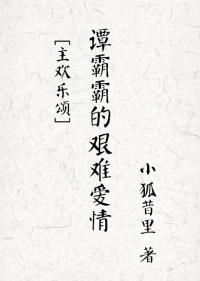 谭霸霸的艰难爱情
[主欢乐颂]
小狐昔里 著